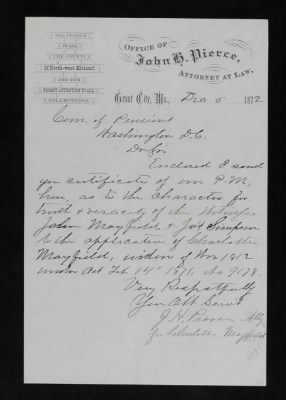 WILL PRACTICE
IN ALL
THE COURTS
Of North-west Missouri
AND GIVE
PROMPT ATTENTION TO ALL
COLLECTIONS.
OFFICE OF
John H. Pierce,
ATTORNEY AT LAW,
Grant City, Mo., Dec 5 1872
Com of Pensions
Washington D.C.
Dr Sir
Enclosed I send
you certificate of our P.M.
here, as to the character for
truth & veracity of the
John Mayfield & Jas Simpson
to the application of Charlotte
Mayfield, widow of War 1812
under Act Feb 14th 1871, No 9178.
Very Respectfully
Your Obt Servt
J H Pierce Atty
for Charlotte Mayfield